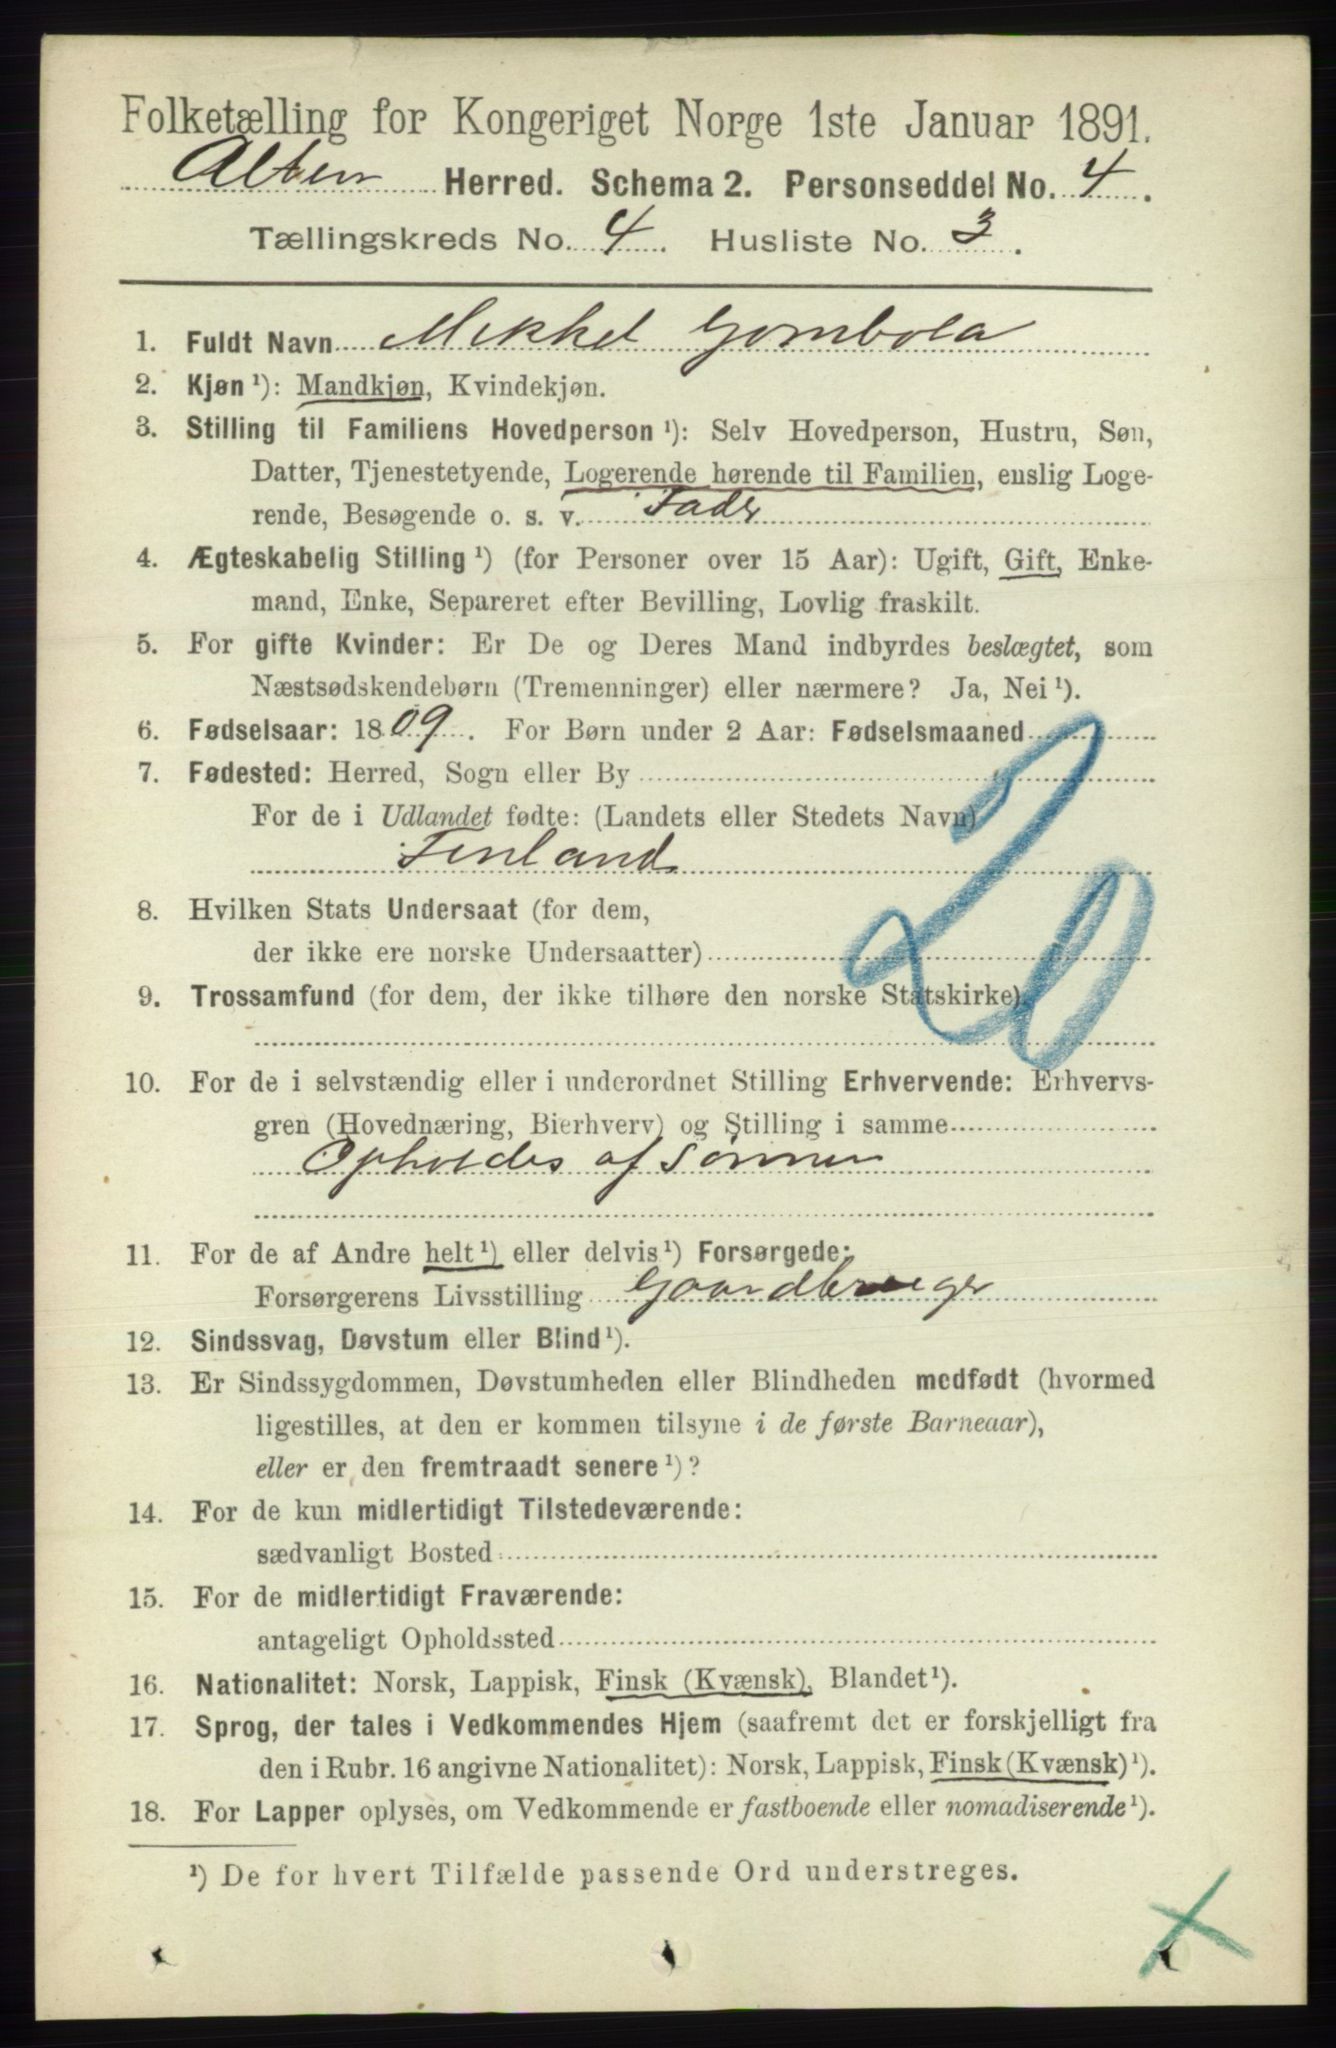 Folketælling for Kongeriget Norge 1ste Januar 1891.
Alten Herred. Schema 2. Personseddel No. 4.
Tællingskreds No. 4. Husliste No. 3.
1. Fuldt Navn Mikkel Gombola
2. Kjøn¹): Mandkjøn, Kvindekjøn.
3. Stilling til Familiens Hovedperson¹): Selv Hovedperson, Hustru, Søn,
Datter, Tjenestetyende, Logerende hørende til Familien, enslig Loge-
rende, Besøgende o. s. v. Fader
4. Ægteskabelig Stilling¹) (for Personer over 15 Aar): Ugift, Gift, Enke-
mand, Enke, Separeret efter Bevilling, Lovlig fraskilt.
5. For gifte Kvinder: Er De og Deres Mand indbyrdes beslægtet, som
Næstsødskendebørn (Tremenninger) eller nærmere? Ja, Nei¹).
6. Fødselsaar: 1809. For Børn under 2 Aar: Fødselsmaaned
7. Fødested: Herred, Sogn eller By
For de i Udlandet fødte: (Landets eller Stedets Navn)
Finland
20
8. Hvilken Stats Undersaat (for dem,
der ikke ere norske Undersaatter)
9. Trossamfund (for dem, der ikke tilhøre den norske Statskirke)
10. For de i selvstændig eller i underordnet Stilling Erhvervende: Erhvervs-
gren (Hovednæring, Bierhverv) og Stilling i samme
Opholdes af Sønnen
11. For de af Andre helt¹) eller delvis¹) Forsørgede:
Forsørgerens Livsstilling Gaardbruger
12. Sindssvag, Døvstum eller Blind¹).
13. Er Sindssygdommen, Døvstumheden eller Blindheden medfødt (hvormed
ligestilles, at den er kommen tilsyne i de første Barneaar),
eller er den fremtraadt senere¹)?
14. For de kun midlertidigt Tilstedeværende:
sædvanligt Bosted
15. For de midlertidigt Fraværende:
antageligt Opholdssted
16. Nationalitet: Norsk, Lappisk, Finsk (Kvænsk), Blandet¹).
17. Sprog, der tales i Vedkommendes Hjem (saafremt det er forskjelligt fra
den i Rubr. 16 angivne Nationalitet): Norsk, Lappisk, Finsk (Kvænsk)¹).
18. For Lapper oplyses, om Vedkommende er fastboende eller nomadiserende¹).
¹) De for hvert Tilfælde passende Ord understreges.